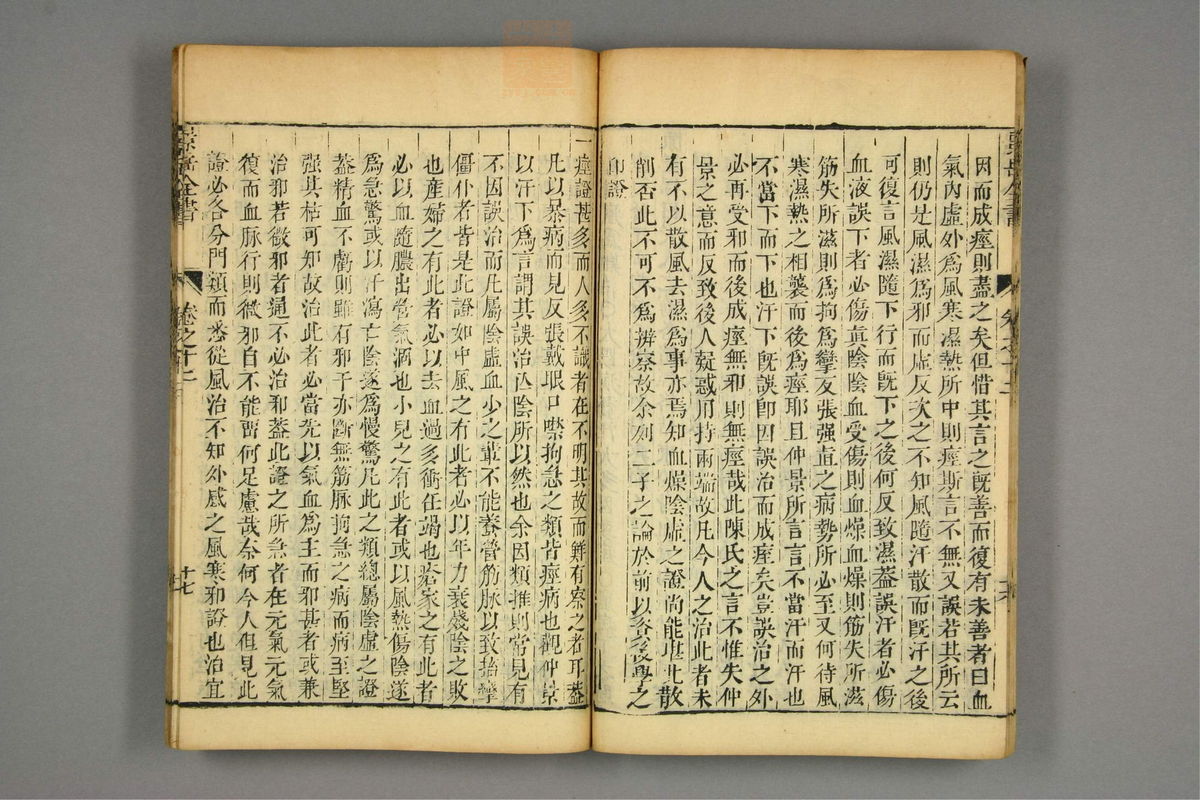 因而成痙則盡之矣但惜其言之旣善而復有未善者曰血
氣內虛外爲風寒濕熱所中則痙斯言不無又誤若其所云
則仍是風濕爲邪而虛反次之不知風隨汗散而旣汗之後
何可復言風濕隨下行而旣下之後何反致濕蓋誤汗者必傷
血液誤下者必傷眞陰陰血受傷則血燥血燥則筋失所滋
筋失所滋則爲拘爲攣反張强直之病勢所必至又何待風
寒濕熱之相襲而後爲痙耶且仲景所言言不當汗而汗也
不當下而下也汗下旣誤卽因誤治而成痙矣豈誤治之外
必再受邪而後成痙無邪則無痙哉此陳氏之言不惟失仲
景之意而反致後人疑惑用持兩端故凡今人之治此者未
有不以散風去濕爲事亦焉知血燥陰虛之證尚能堪此散
削否此不可不爲辨察故余列二子之論於前以資後學之
印證
一痙證甚多而人多不識者在不明其故而鮮有察之者耳蓋
凡以暴病而見反張戴眼口噤拘急之類皆痙病也觀仲景
以汗下爲言謂其誤治亡陰所以然也余因類推則常見有
不因誤治而凡屬陰虛血少之輩不能養營筋脉以致搐攣
僵仆者皆是此證如中風之有此者必以年力衰殘陰之敗
也産婦之有此者必以去血過多衝任竭也瘡家之有此者
必以血隨膿出營氣涸也小兒之有此者或以風熱傷陰遂
爲急驚或以汗瀉亡陰遂爲慢驚凡此之類總屬陰虛之證
蓋精血不虧則雖有邪干亦斷無筋脉拘急之病而病至堅
强其枯可知故治此者必當先以氣血爲主而邪甚者或兼
治邪若微邪者通不必治邪蓋此證之所急者在元氣元氣
復而血脉行則微邪自不能留何足慮哉奈何今人但見此
證必各分門類而悉從風治不知外感之風寒邪證也治宜
景岳全書
卷之十二
十七